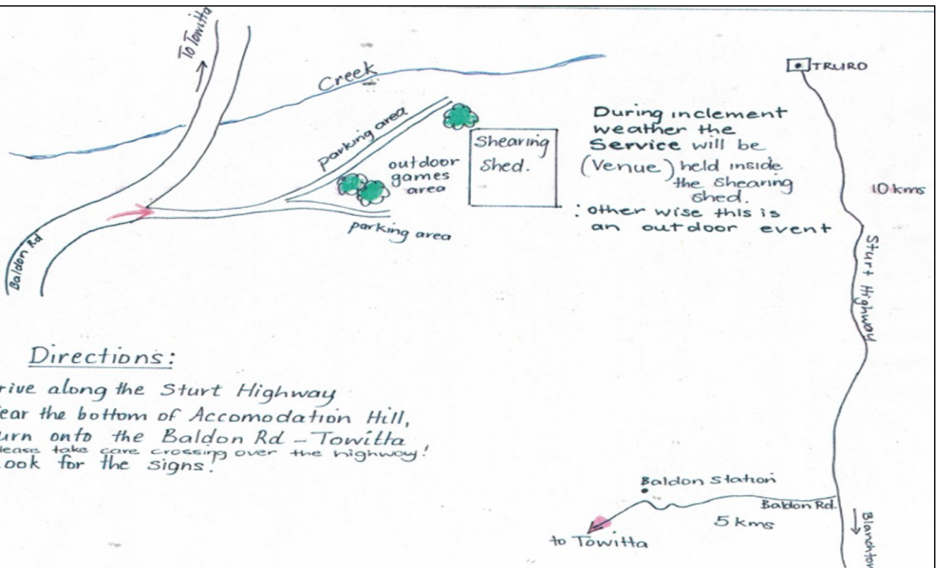 To Towitta
Creek
parking area
Shearing
Shed.
outdoor
games
area
parking area
Baldon Rd
During inclement
weather the
Service will be
(Venue) held inside
the shearing
shed.
: other wise this is
an outdoor event
TRURO
10 kms
Sturt Highway
Directions:
rive along the Sturt Highway
ear the bottom of Accomodation Hill,
urn onto the Baldon Rd - Towitta
lease take care crossing over the highway!
ook for the signs.
Baldon Station
Baldon Rd.
5 kms
to Towitta
Blanchtow